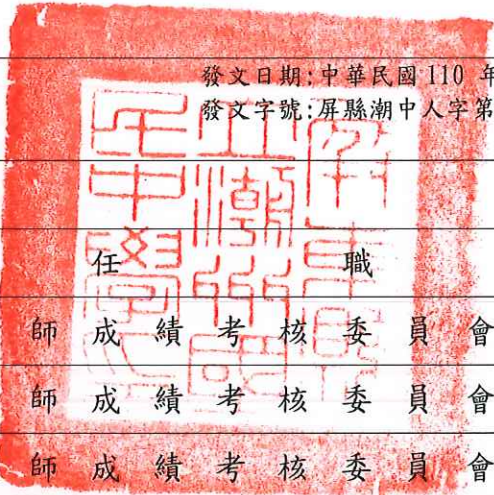 發文日期:中華民國 110 年
發文字號:屏縣潮中人字第
任 職
師 成 績 考 核 委 員 會
師 成 績 考 核 委 員 會
師 成 績 考 核 委 員 會
屏東縣
立潮州國
民中學印